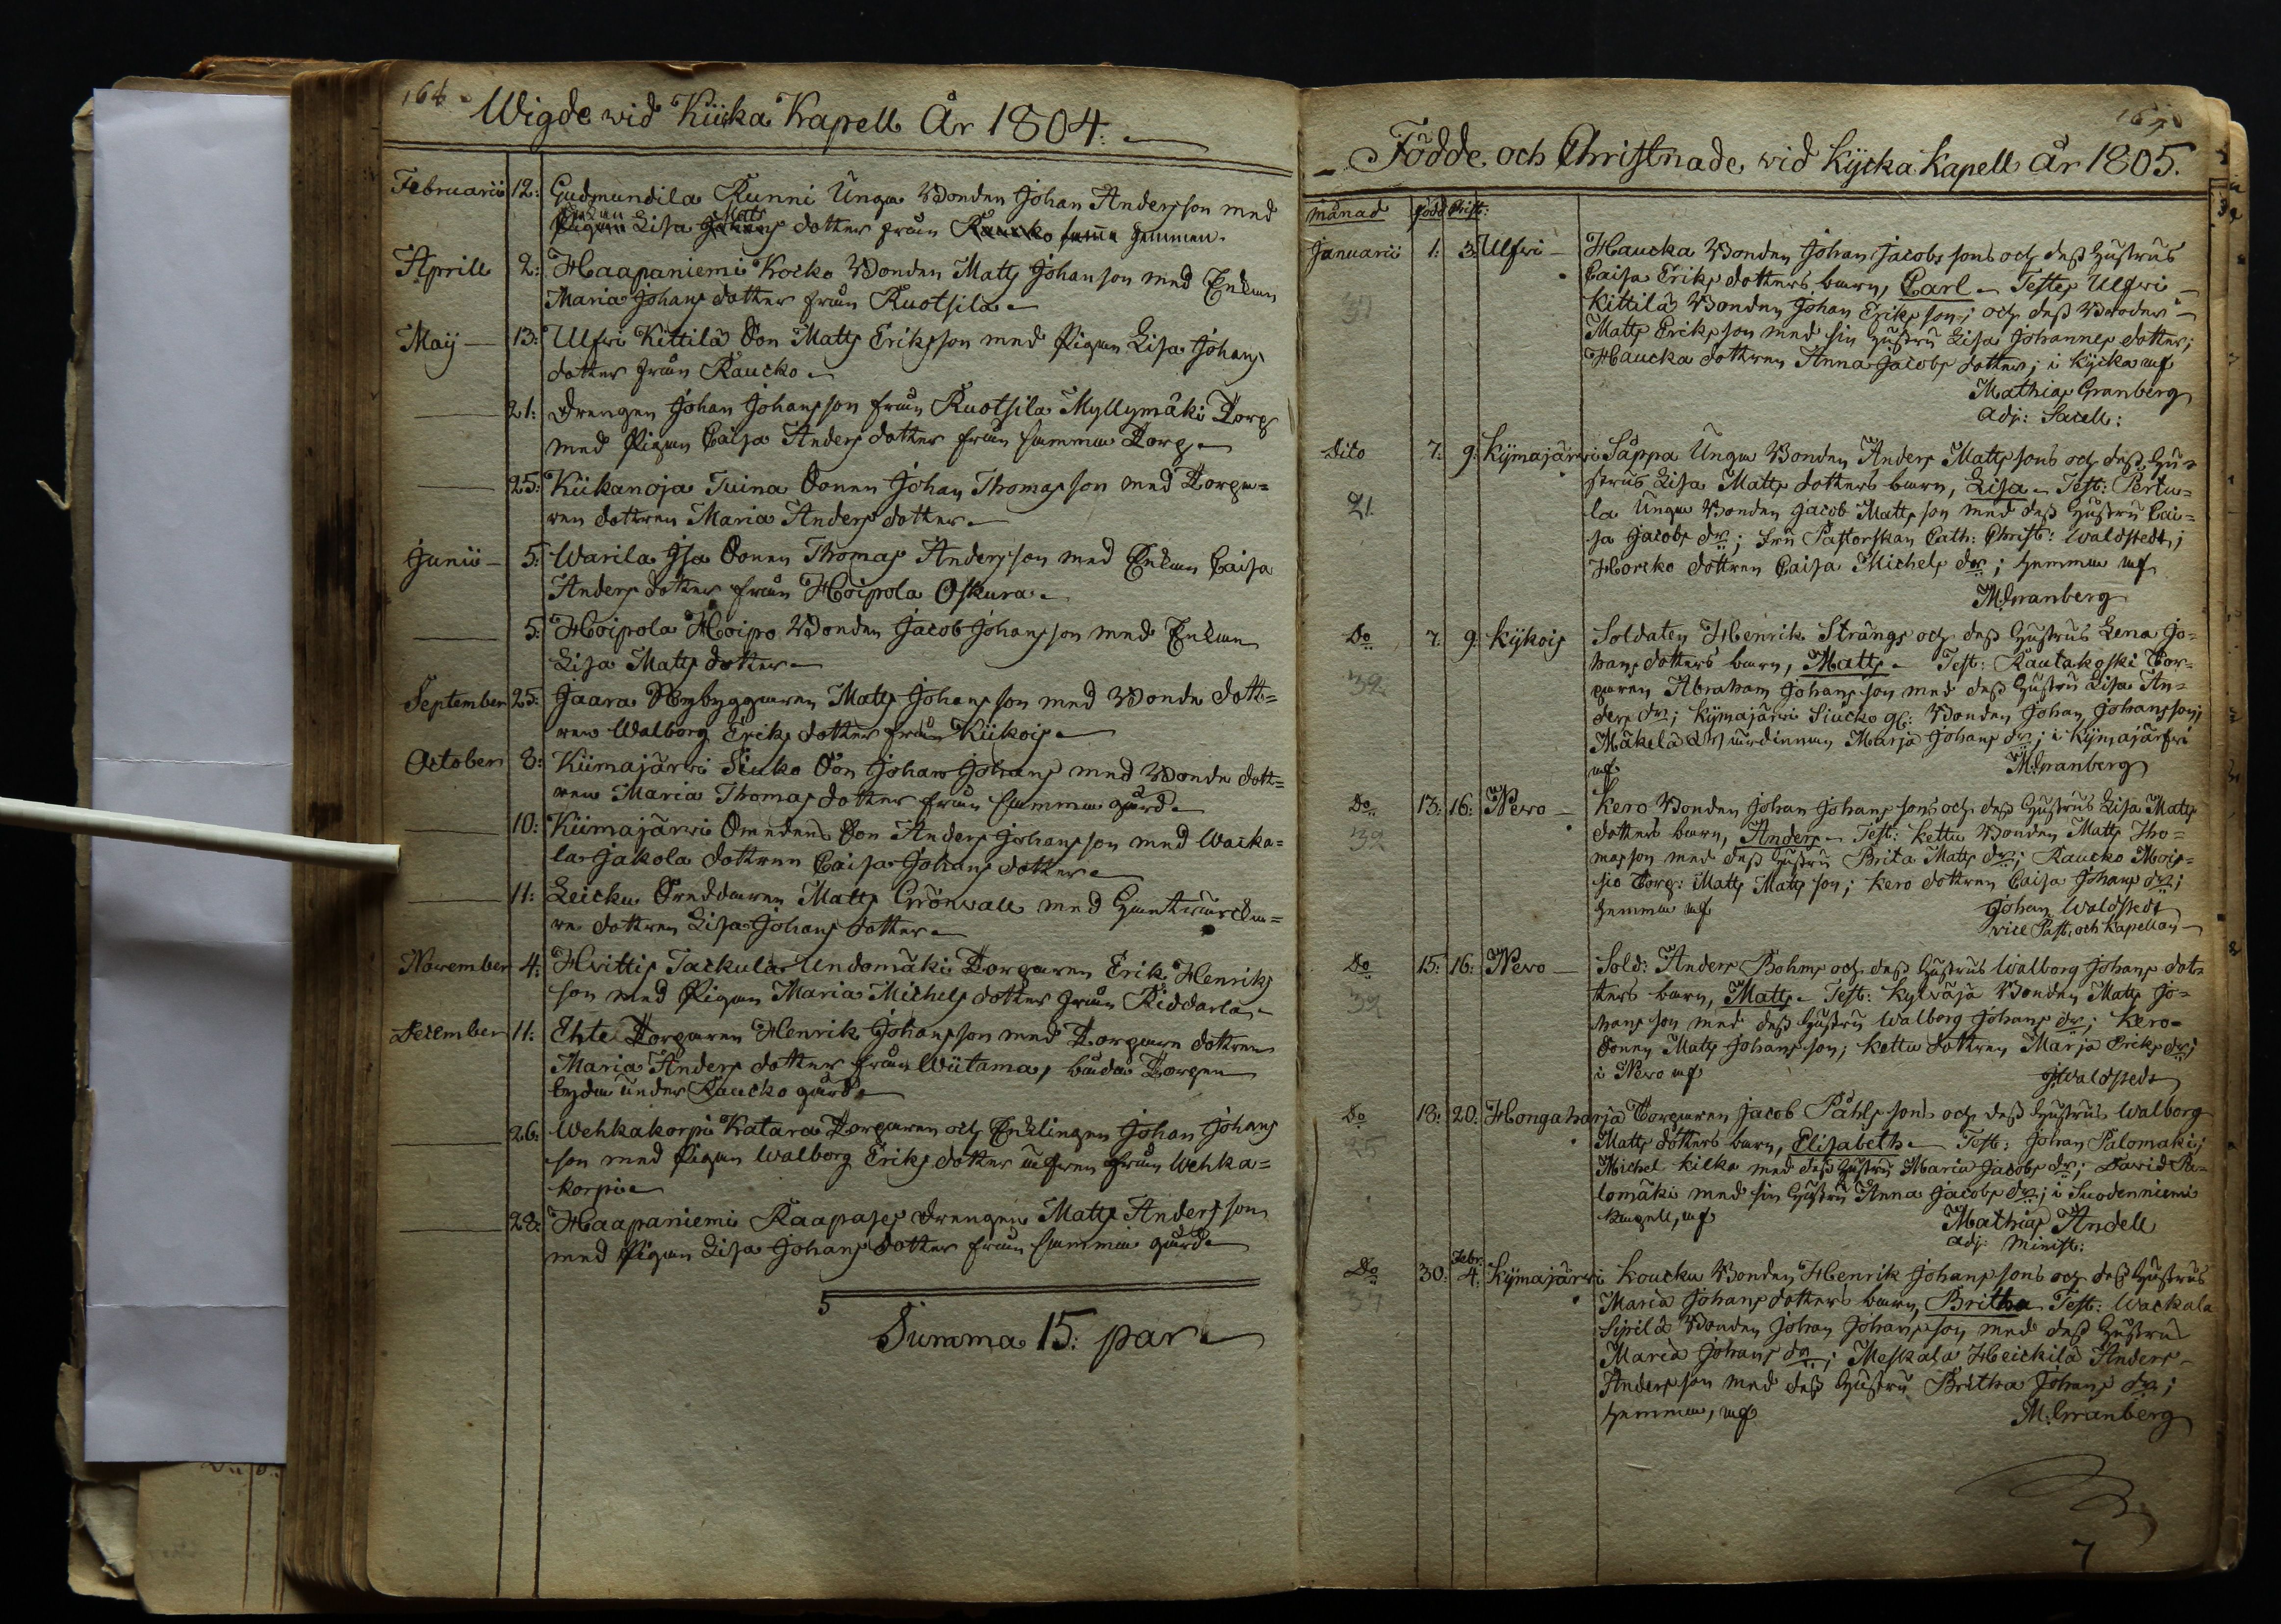 164
Wigde wid Kiika Kapell År 1804.
Februarii 12: Gudmundila Runni Unga Bonden Johan Andersson med
Enkan Pigan Lisa Mats Johans dotter från Raucko samma hemman.
Aprill 2: Haapaniemi Kocko Bonden Matts Johanson med Enkan
Maria Johans dotter från Ruotsila
Maij 13: Ulfwi Kittilä Son Matts Eriksson med Pigan Lisa Johans
dotter från Raucko
21: Drengen Johan Johansson från Ruotsila Myllymäki Torp
med Pigan Caisa Anders dotter från samma Torp
25: Kiikanoja Tuina Sonen Johan Thomasson med Torpa=
ren dottren Maria Anders dotter
Junii 5: Warila Isa Sonen Thomas Andersson med Enkan Caisa
Anders dotter från Hoipola Oskura
5: Hoipola Hoipo Bonden Jacob Johansson med Enkan
Lisa Matts dotter
September 25: Jaara Nybyggaren Matts Johansson med Bonde dott=
ren Walborg Eriks dotter från Kiikois
October 8: Kiimajärwi Siuko Son Johan Johans med Bonde dott=
ren Maria Thomas dotter från samma gård
10: Kiimajärwi Son Anders Johansson med Wacka=
la Jakola dottren Caisa Johans dotter
11: Leicku Matts Grönwall med
re dottren Lisa Johans dotter
November 4: Hvittis Tackula Undomäki Torparen Erik Henriks
son med Pigan Maria Michels dotter från Riddarla
December 11: Ehte Torparen Henrik Johansson med Torpare dottren
Maria Anders dotter från Wiitama, båda Torpen
lyda under Raucko gård
26: Wehkakorpi Katara Torparen och Enklingen Johan Johans
son med Pigan Walborg Eriks dotter äfwen från Wehka=
korpi
28: Haapaniemi Raapases Drengen Matts Andersson
med Pigan Lisa Johans dotter från samma gård
Summa 15: par
Födde och Christnade wid Kijcka Kapell År 1805.
månad född Christ:
Januarii 1: 3: Ulfwi Haucka Bonden Johan Jacobs sons och dess Hustrus
Caisa Eriks dotters barn, Carl Testes Ulfwi
37
Kittilä Bonden Johan Eriksson; och dess Broder
Matts Eriksson med sin Hustru Lisa Johannes dotter;
Haucka dottren Anna Jacobs dotter; i Kijcka
Mathias Granberg
Adj: Sacell:
Dito 7: 9: Kijmajärwi Säppa Unga Bonden Anders Matts sons och dess Hu=
strus Lisa Matts dotters barn, Lisa Test: Pertu=
21
la Unga Bonden Jacob Matts son med dess Hustru Cai=
sa Jacobs dr; Fru Pastorskan Cath: Christ: Waldstedt;
Horcko dottren Caisa Michels dr; hemma
M: Granberg
Do 7: 9: Kijkois Soldaten Henrik Strångs och dess Hustrus Lena Jo=
hans dotters barn, Matts Test: Rautakoski Tor=
39
paren Abraham Johansson med dess Hustru Lisa An=
ders dr; Kijmajärwi Siucko Bonden Johan Johansson;
Mäkelä wärdinnan Marja Johans dr; i Kijmajärfwi
M: Granberg
Do 13: 16: Nero Kero Bonden Johan Johans sons och dess Hustrus Lisa Matts
dotters barn, Anders Test: Kettu Bonden Matts Tho=
39
masson med dess Hustru Brita Matts dr; Raucko Mois=
sio Torp: Matts Mattsson; Kero dottren Caisa Johans dr;
hemma
Johan Waldstedt
vice Past. och Kapellan
Do 15: 16: Nero Sold: Anders Bohms och dess Hustrus Walborg Johans dot=
ters barn, Matts Test: Kylväjä Bonden Matts Jo=
39
hansson med dess Hustru Walborg Johans dr; Kero
Sonen Matts Johansson; Kettu dottren Marja Eriks dr;
i Nero
J: Waldstedt
Do 18: 20: Hongaharja Torparen Jacob Påhls sons och dess Hustrus Walborg
25
Matts dotters barn, Elisabeth Test: Johan Palomäki;
Michel Kilka med dess Hustru Maria Jacobs dr; David Pa=
lomäki med sin Hustru Anna Jacobs dr; i Suodenniemi
Kapell,
Mathias Andell
Adj: Minist:
Do 30: Febr: 4: Kijmajärwi Koucku Bonden Henrik Johans sons och dess Hustrus
Maria Johans dotters barn, Britha Test: Wackala
Sipilä Bonden Johan Johansson med dess Hustru
Maria Johans dr; Meskala Heickilä Anders
Andersson med dess Hustru Britha Johans dr;
hemma,
M: Granberg